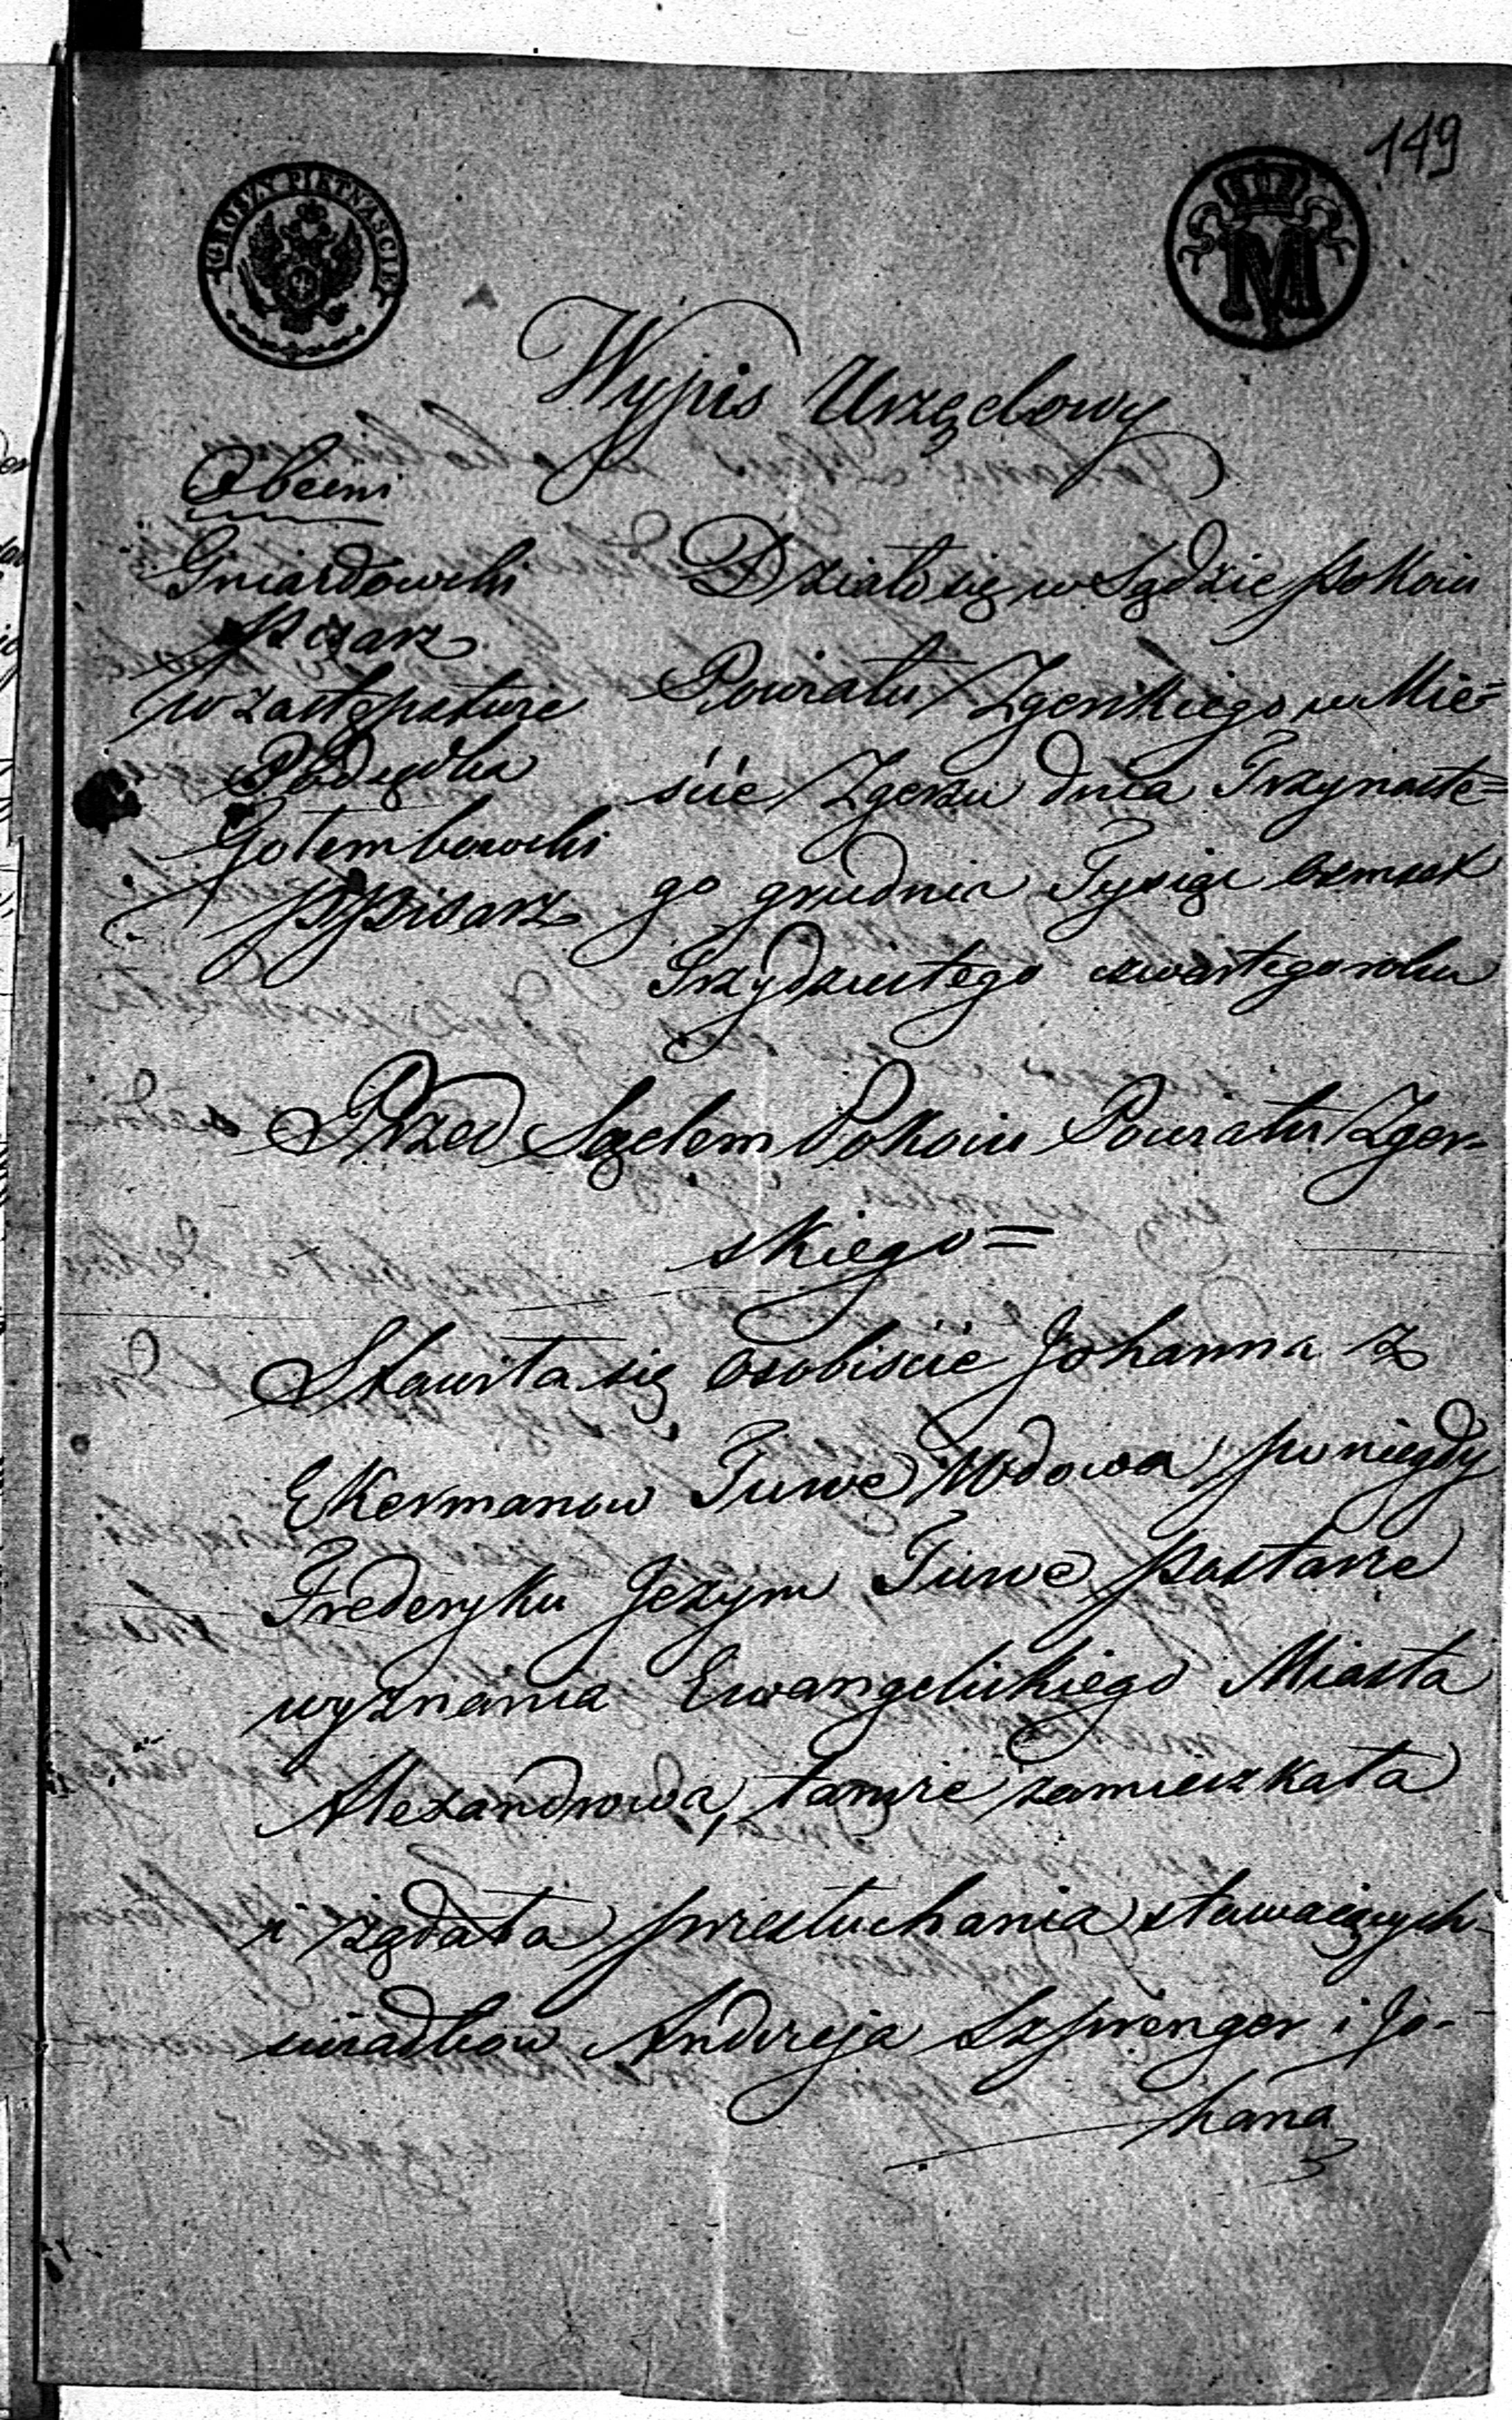 149
GROSZY PIĘTNAŚCIE
M
Wypis Urzędowy
Obecni
Gniazdowski
Pisarz
w zastępstwie
Podsędka
Gołembowski
PPisarz
Działo się w Sądzie Pokoiu
Powiatu Zgerskiego w Mie=
ście Zgerzu dnia Trzynaste=
go grudnia Tysiąc osmset
Trzydziestego czwartego roku
Przed Sądem Pokoiu Powiatu Zger=
skiego=
Stawiła się osobiście Johanna z
Ekermanow Tuwe Wdowa po niegdy
Frederyku Jezym Tuwe pozostała
wyznania Ewangelickiego Miasta
Alexandrowa, tamże zamieszkała
i żądała przesłuchania stawaiących
świadkow Andrzeja Szprenger i Jo-
hana